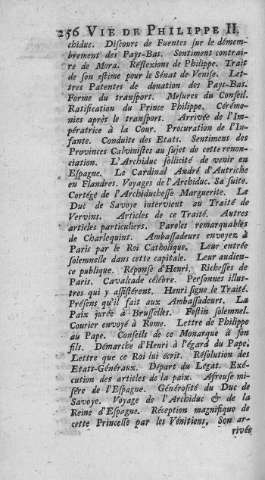 256 VIE DE PHILIPPE II,
chiduc. Discours de Fuentes sur le démem-
brement des Pays-Bas. Sentiment contrai-
re de Mora. Réflexions de Philippe. Trait
de son estime pour le Sénat de Venise. Let-
tres Patentes de donation des Pays-Bas.
Forme du transport. Mesures du Conseil.
Ratification du Prince Philippe. Cérémo-
nies après le transport. Arrivée de l'Im-
pératrice à la Cour. Procuration de l'In-
fante. Conduite des Etats. Sentiment des
Provinces Calvinistes au sujet de cette renon-
ciation. L'Archiduc sollicité de venir en
Espagne. Le Cardinal André d'Autriche
en Flandres. Voyages de l'Archiduc. Sa suite.
Cortége de l'Archiduchesse Marguerite. Le
Duc de Savoye intervient au Traité de
Vervins. Articles de ce Traité. Autres
articles particuliers. Paroles remarquables
de Charlequint. Ambassadeurs envoyés à
Paris par le Roi Catholique. Leur entrée
solemnelle dans cette capitale. Leur audien-
ce publique. Réponse d'Henri. Richesses de
Paris. Cavalcade célébre. Personnes illus-
tres qui y assistèrent. Henri signe le Traité.
Présens qu'il fait aux Ambassadeurs. La
Paix jurée à Brusselles. Festin solemnel.
Courier envoyé à Rome. Lettre de Philippe
au Pape. Conseils de ce Monarque à son
fils. Démarche d'Henri à l'égard du Pape.
Lettre que ce Roi lui écrit. Résolution des
Etats-Généraux. Départ du Légat. Exé-
cution des articles de la paix. Affreuse mi-
sére de l'Espagne. Générosité du Duc de
Savoye. Voyage de l'Archiduc & de la
Reine d'Espagne. Réception magnifique de
cette Princesse par les Vénitiens, Son ar-
rivée